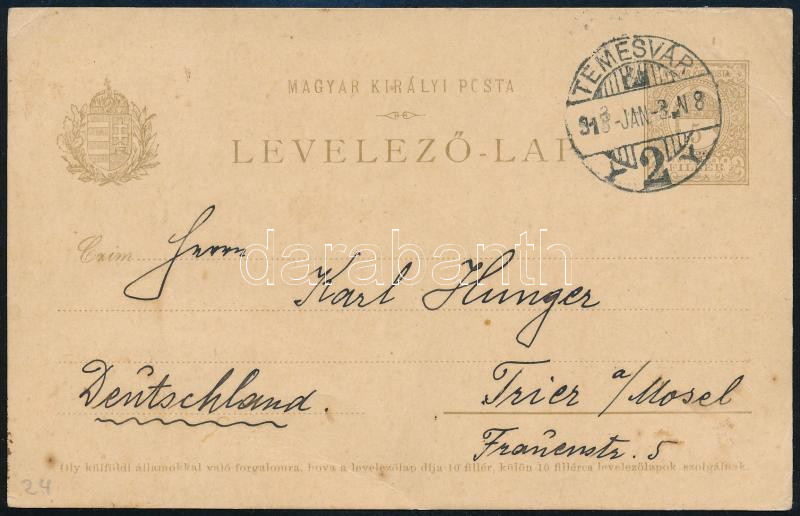 MAGYAR KIRÁLYI POSTA
LEVELEZŐ-LAP
TEMESVÁR
-JAN-3. N 8
2
5
FILLÉR
Czim Herrn
Karl Hunger
Deutschland.
Trier a/Mosel
Frauenstr. 5
Oly külföldi államokkal való forgalomra, hova a levelezőlap dija 10 fillér, külön 10 filléres levelezőlapok szolgálnak.
24
darabanth